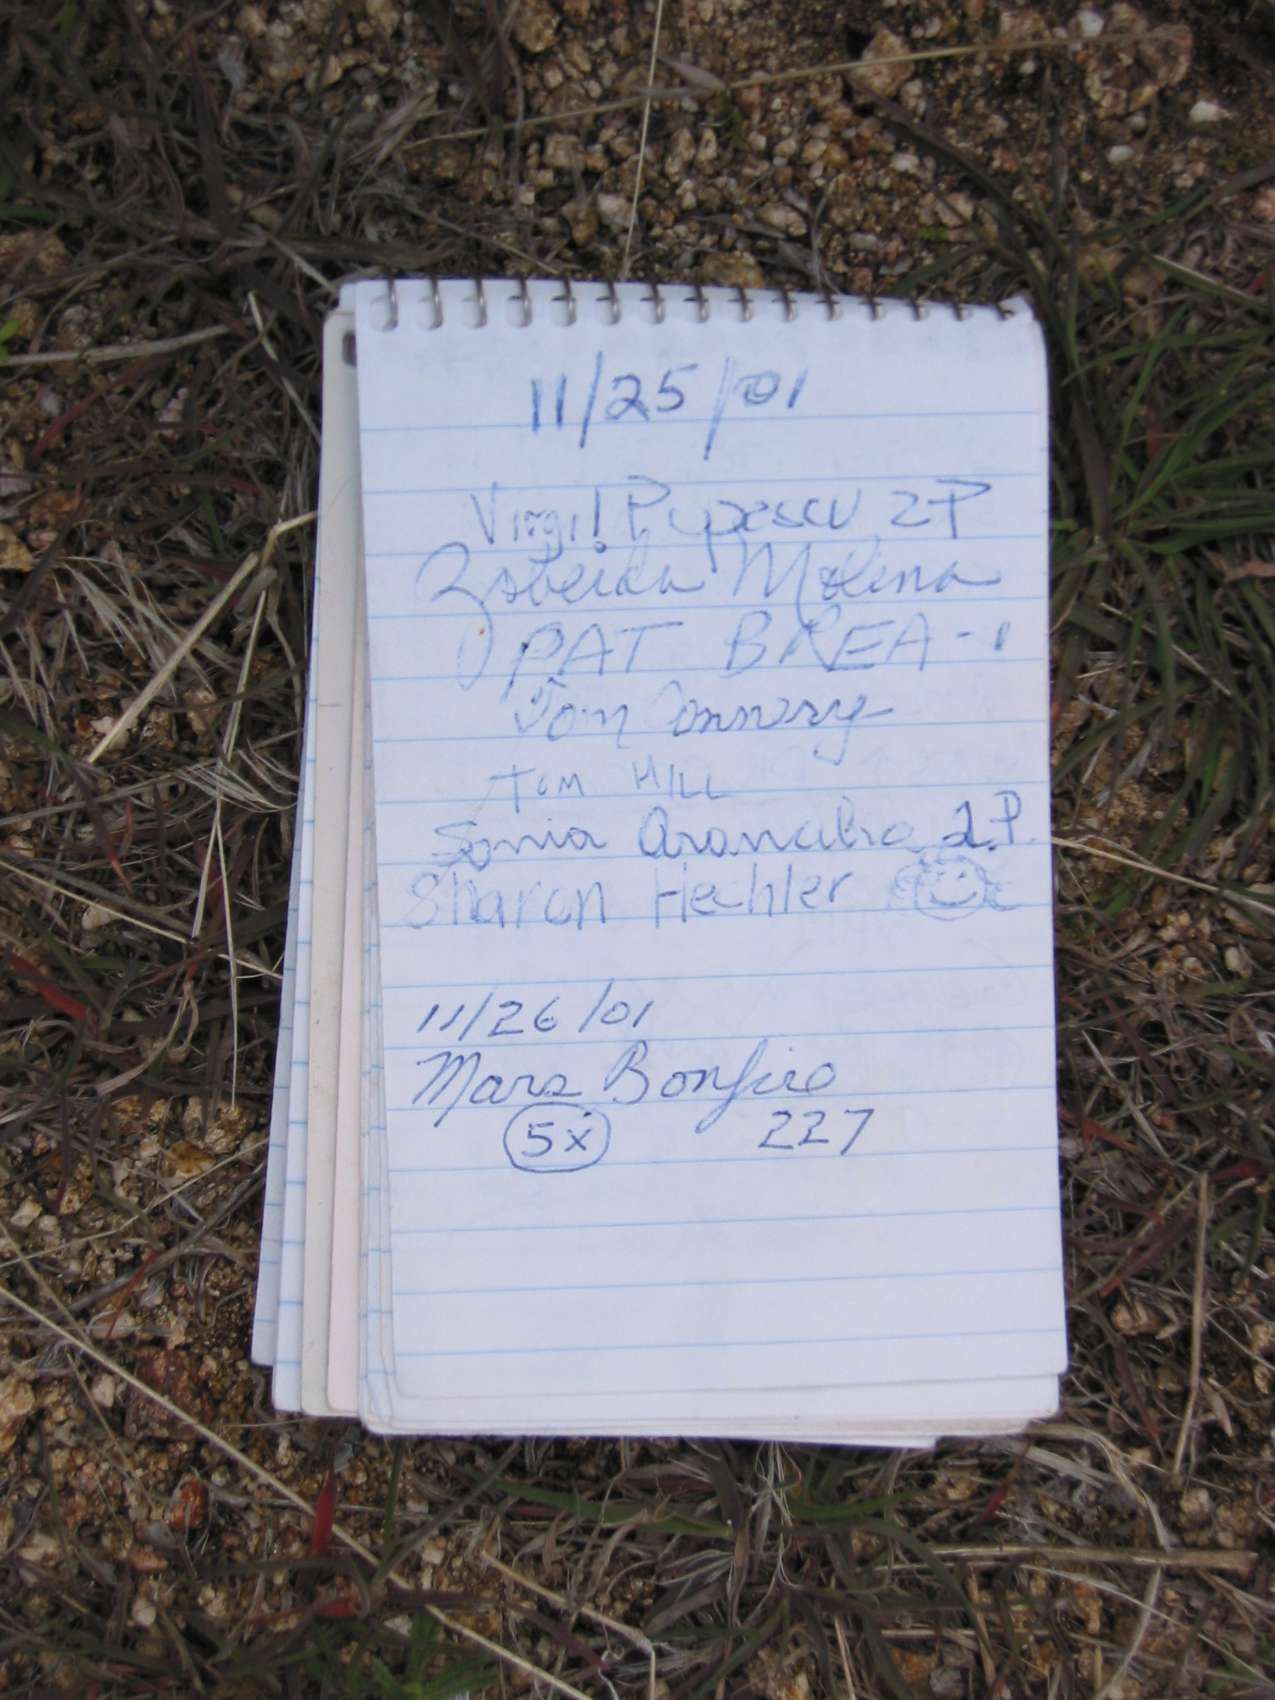 11/25/01
Virgil Popescu 2P
Zobeida Molina
PAT BREA -1
Tom Connery
TOM HILL
Sonia Arancibia 2P.
Sharon Hechler
11/26/01
Mars Bonfire
5x 227